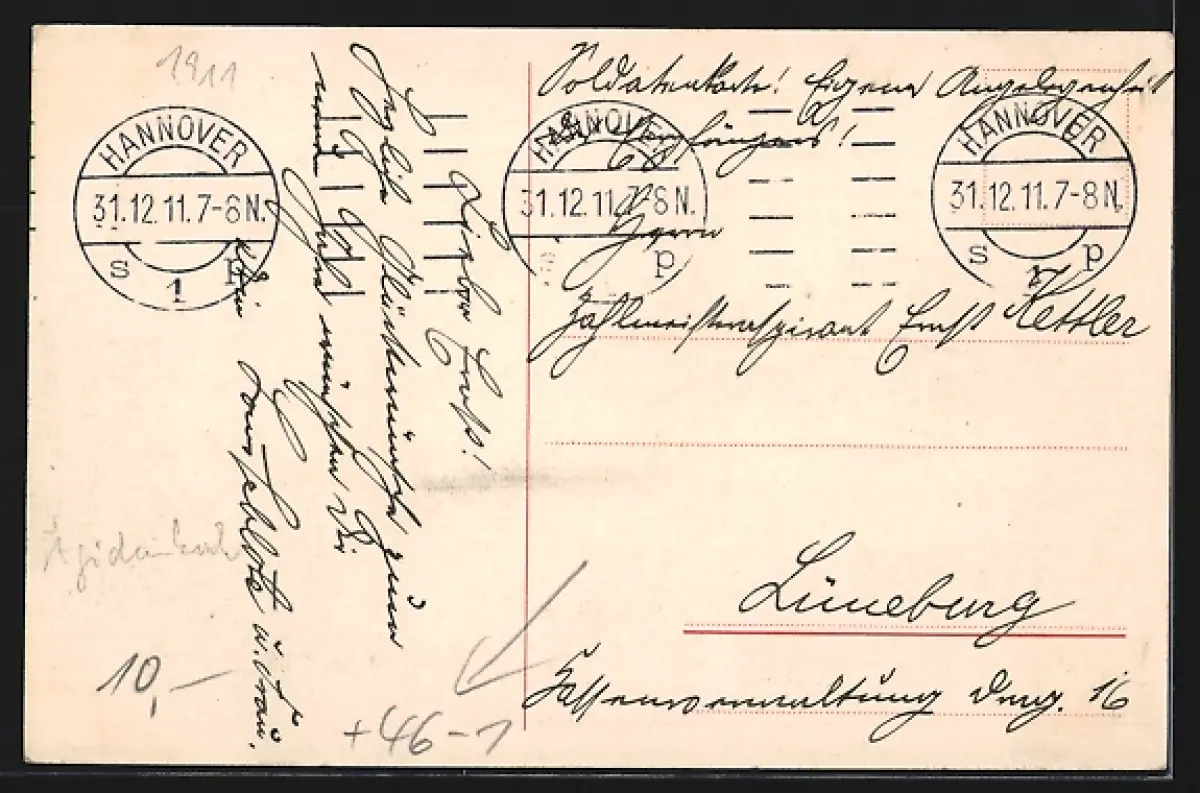 1911
HANNOVER
31.12.11.7-8N.
s 1 p
HANNOVER
31.12.11.7-8N.
p
HANNOVER
31.12.11.7-8N.
s 1 p
Soldatenkarte! Eigene Angelegenheit
des Empfängers!
Herrn
Zahlmeisteraspirant Ernst Kettler
Lüneburg
Kassenverwaltung Drag. 16
Lieber Ernst!
Herzliche Glückwünsche zum
neuen Jahre wünschen Dir
Schlote u. Frau.
Ägidienkirche
10,-
+46-1